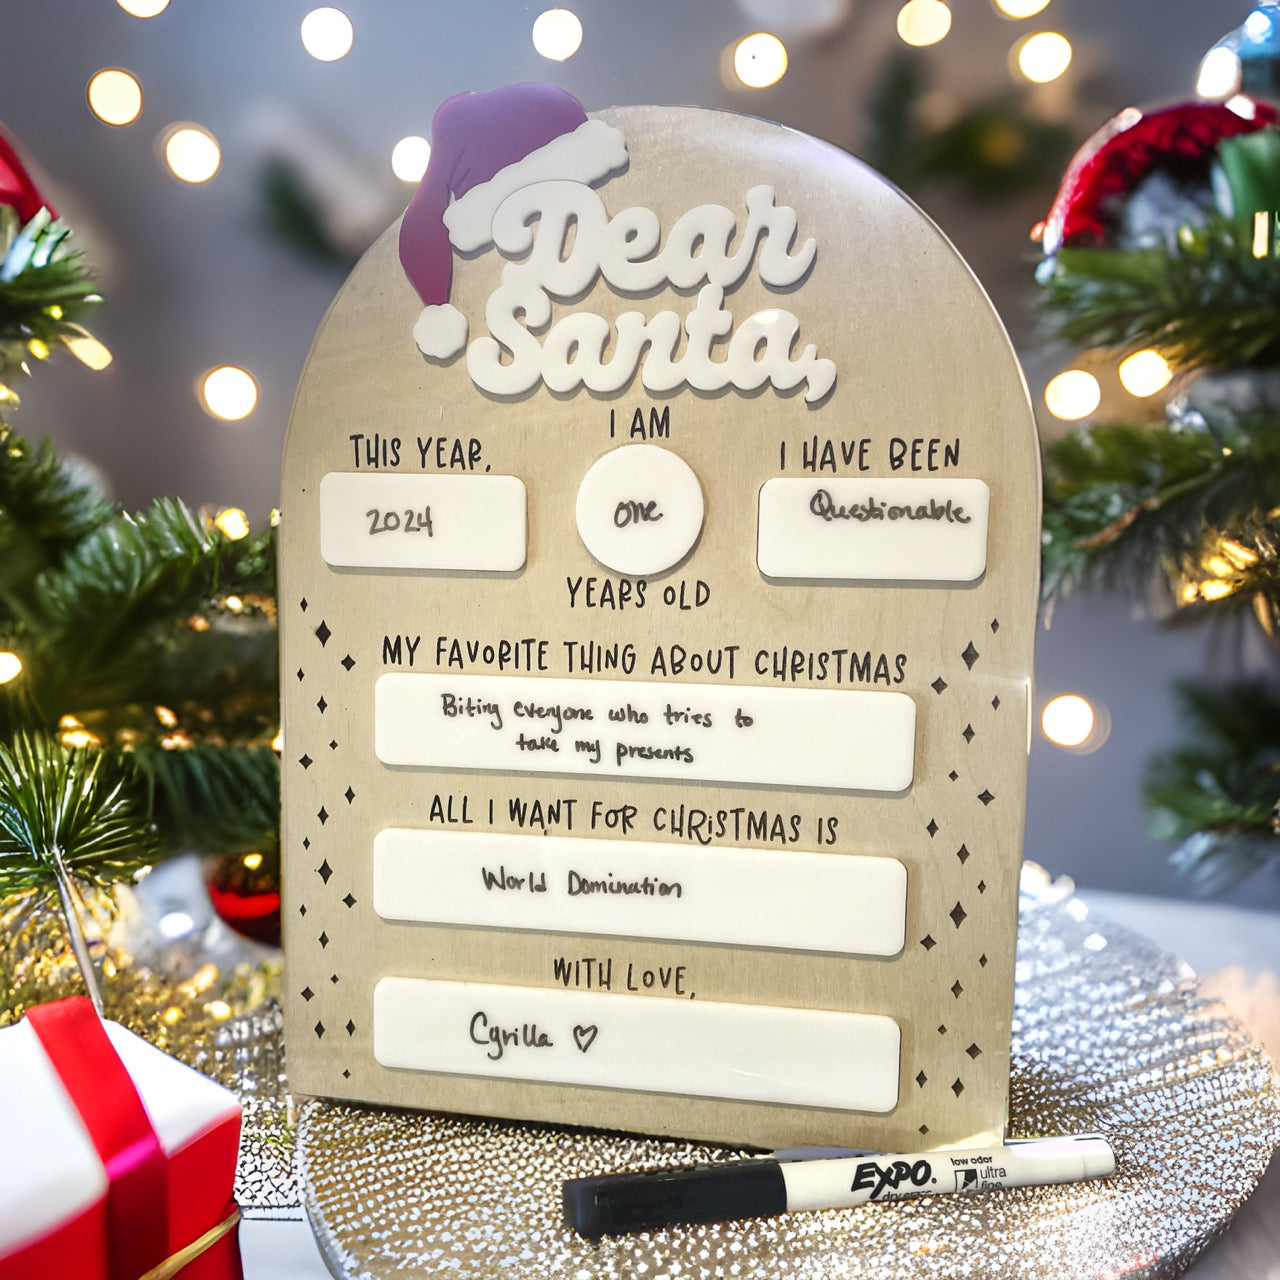 Dear
Santa,
I AM
THIS YEAR,
I HAVE BEEN
2024
one
Questionable
YEARS OLD
MY FAVORITE THING ABOUT CHRISTMAS
Biting everyone who tries to
take my presents
ALL I WANT FOR CHRISTMAS IS
World Domination
WITH LOVE,
Cyrilla ♡
EXPO.
low odor
ultra
fine
dry erase